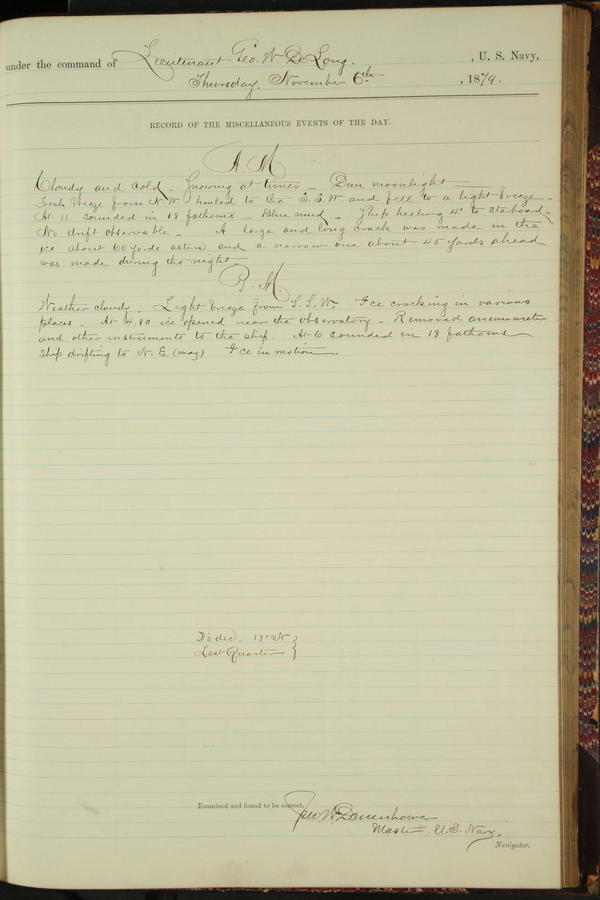 under the command of Lieutenant Geo. W. De Long. , U. S. Navy,
Thursday, November 6th , 1879.
RECORD OF THE MISCELLANEOUS EVENTS OF THE DAY.
A. M.
Cloudy and cold - Snowing at times - Dim moonlight -
Fresh breeze from N. W. hauled to the S. S. W. and fell to a light breeze -
At 11 sounded in 18 fathoms - Blue mud - Ship heeling 4° to starboard -
No drift observable - A large and long crack was made in the
ice about 60 yards astern and a narrow one about 45 yards ahead
was made during the night -
P. M.
Weather cloudy - Light breeze from S. S. W. Ice cracking in various
places - At 4.30 ice opened near the observatory - Removed anemometer
and other instruments to the ship. At 6 sounded in 18 fathoms
Ship drifting to N. E. (mag) Ice in motion -
D's dec. 13° N }
Last Quarter }
Examined and found to be correct,
Jno. W. Danenhower
Master, U. S. Navy,
Navigator.